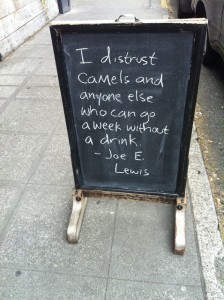 I distrust
camels and
anyone else
who can go
a week without
a drink.
- Joe E.
Lewis